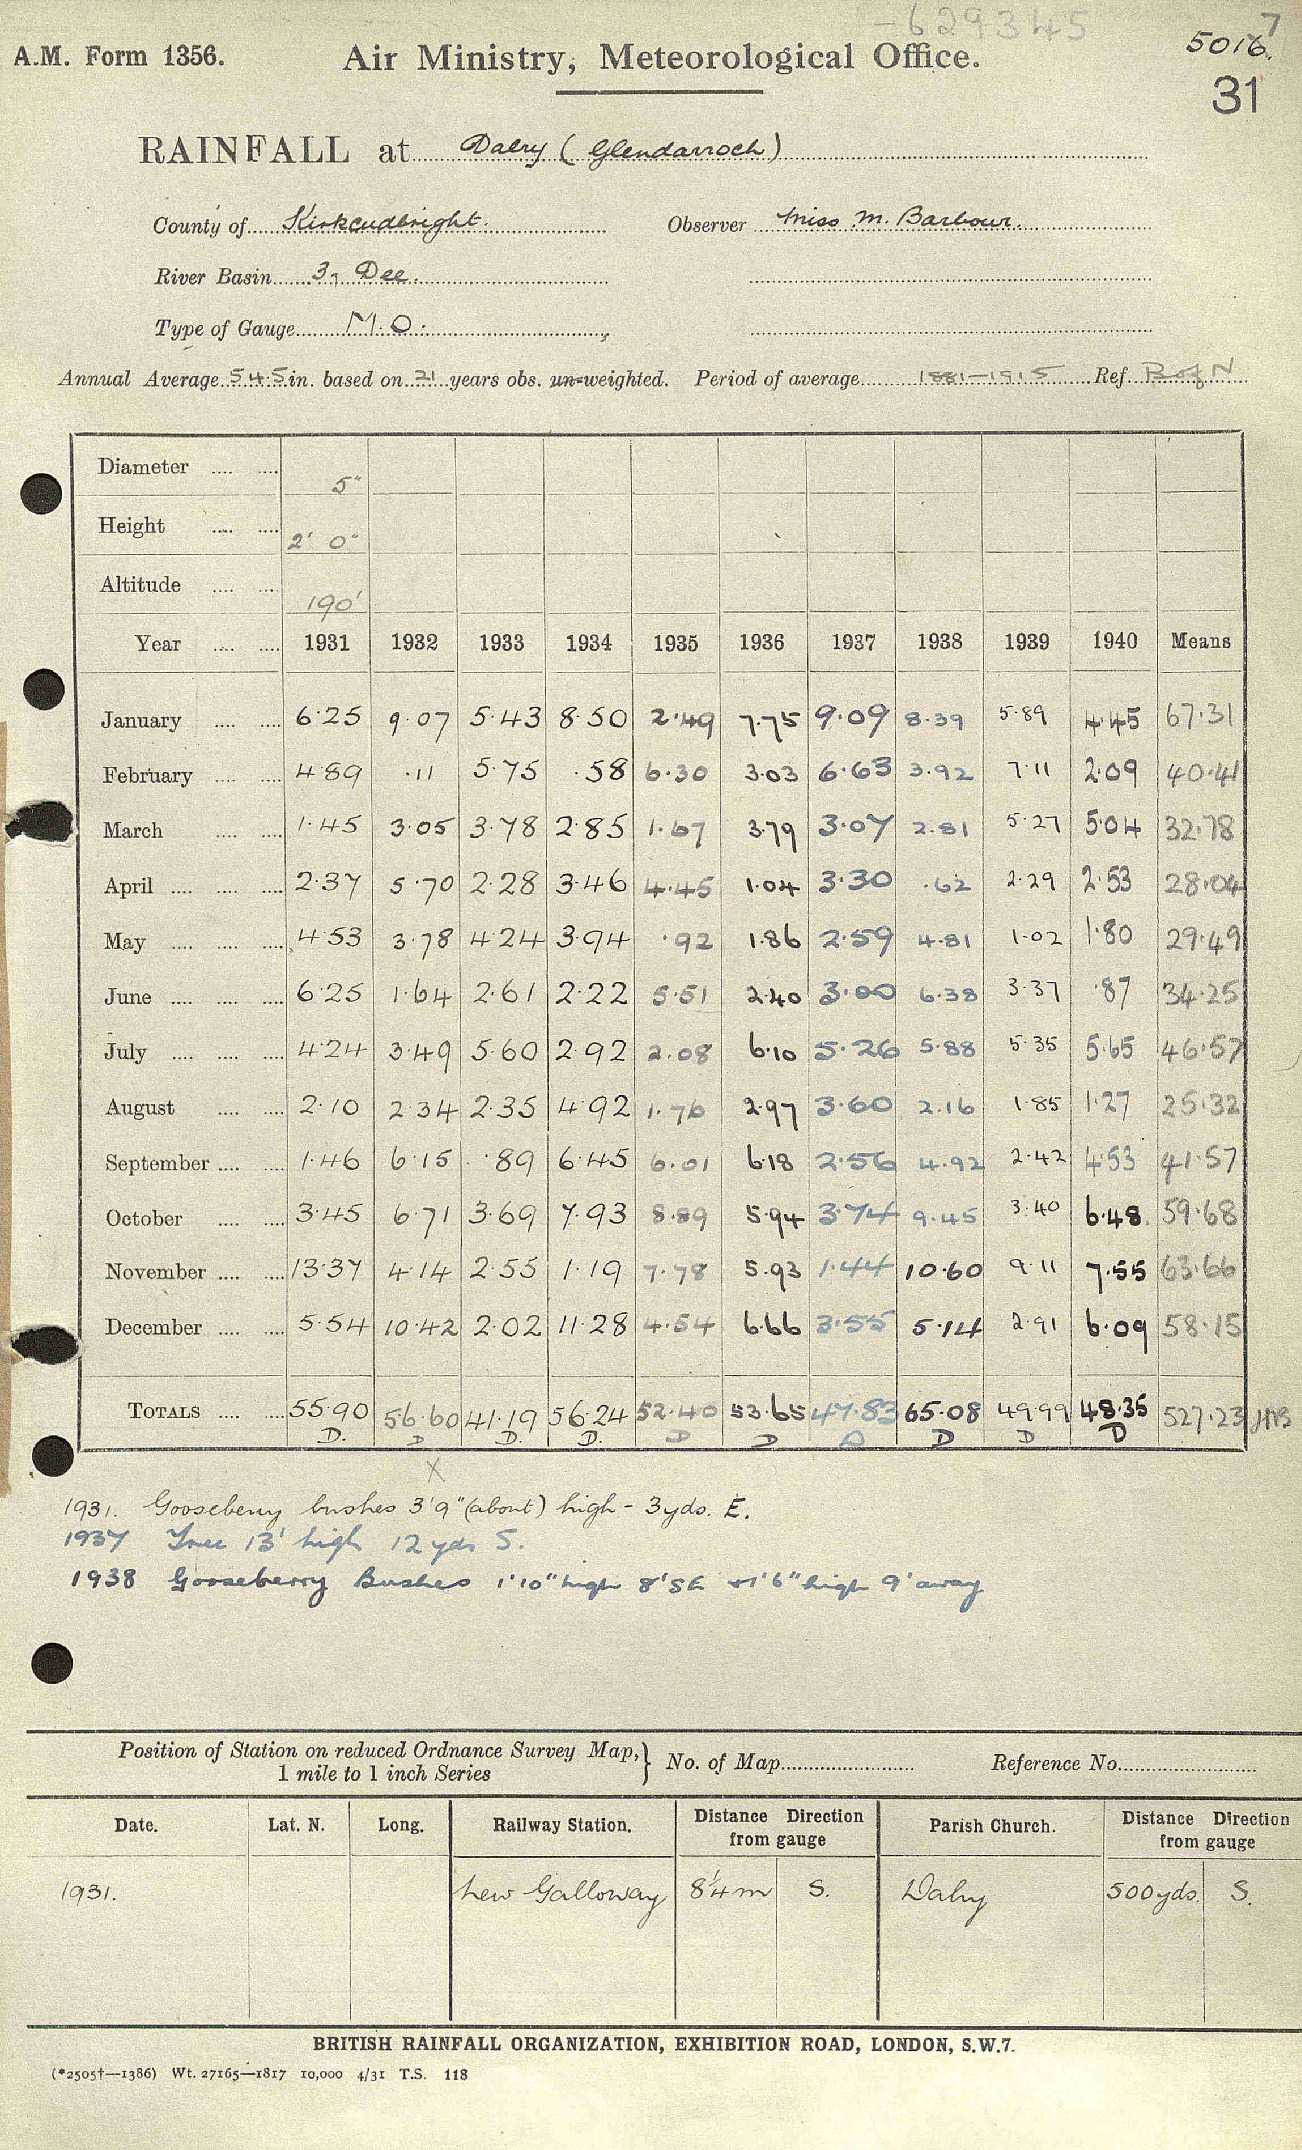 -629345 7
A.M. Form 1356. Air Ministry, Meteorological Office. 5016.
31
RAINFALL at Dalry (Glendarroch)
County of Kirkcudbright. Observer Miss M. Barbour.
River Basin 37 Dee.
Type of Gauge M.O.
Annual Average 54.5 in. based on 21 years obs. un-weighted. Period of average 1881-1915 Ref. B of N
Diameter .... .... 5"
Height .... .... 2' 0"
Altitude .... .... 190'
Year .... .... 1931 1932 1933 1934 1935 1936 1937 1938 1939 1940 Means
January .... .... 6.25 9.07 5.43 8.50 2.49 7.75 9.09 8.39 5.89 4.45 67.31
February .... .... 4.89 .11 5.75 .58 6.30 3.03 6.63 3.92 7.11 2.09 40.41
March .... .... 1.45 3.05 3.78 2.85 1.67 3.79 3.07 2.81 5.27 5.04 32.78
April .... .... .... 2.37 5.70 2.28 3.46 4.45 1.04 3.30 .62 2.29 2.53 28.04
May .... .... .... 4.53 3.78 4.24 3.94 .92 1.86 2.59 4.81 1.02 1.80 29.49
June .... .... .... 6.25 1.64 2.61 2.22 5.51 2.40 3.00 6.38 3.37 .87 34.25
July .... .... .... 4.24 3.49 5.60 2.92 2.08 6.10 5.26 5.88 5.35 5.65 46.57
August .... .... 2.10 2.34 2.35 4.92 1.76 2.97 3.60 2.16 1.85 1.27 25.32
September .... .... 1.46 6.15 .89 6.45 6.01 6.18 2.56 4.92 2.42 4.53 41.57
October .... .... 3.45 6.71 3.69 7.93 8.89 5.94 3.74 9.45 3.40 6.48 59.68
November .... .... 13.37 4.14 2.55 1.19 7.78 5.93 1.44 10.60 9.11 7.55 63.66
December .... .... 5.54 10.42 2.02 11.28 4.54 6.66 3.55 5.14 2.91 6.09 58.15
TOTALS .... .... 55.90 56.60 41.19 56.24 52.40 53.65 47.83 65.08 49.99 48.35 527.23
D. D D. D. D D D D D D
X
1931. Gooseberry bushes 3'9" (about) high - 3yds. E.
1937 Tree 13' high 12 yds S.
1938 Gooseberry Bushes 1'10" high 8' SE + 1'6" high 9' away
Position of Station on reduced Ordnance Survey Map, } No. of Map Reference No.
1 mile to 1 inch Series
Date. Lat. N. Long. Railway Station. Distance Direction from gauge Parish Church. Distance Direction from gauge
1931. New Galloway 8¼ m S. Dalry 500 yds. S.
BRITISH RAINFALL ORGANIZATION, EXHIBITION ROAD, LONDON, S.W.7.
(*2505†—1386) Wt. 27165—1817 10,000 4/31 T.S. 118